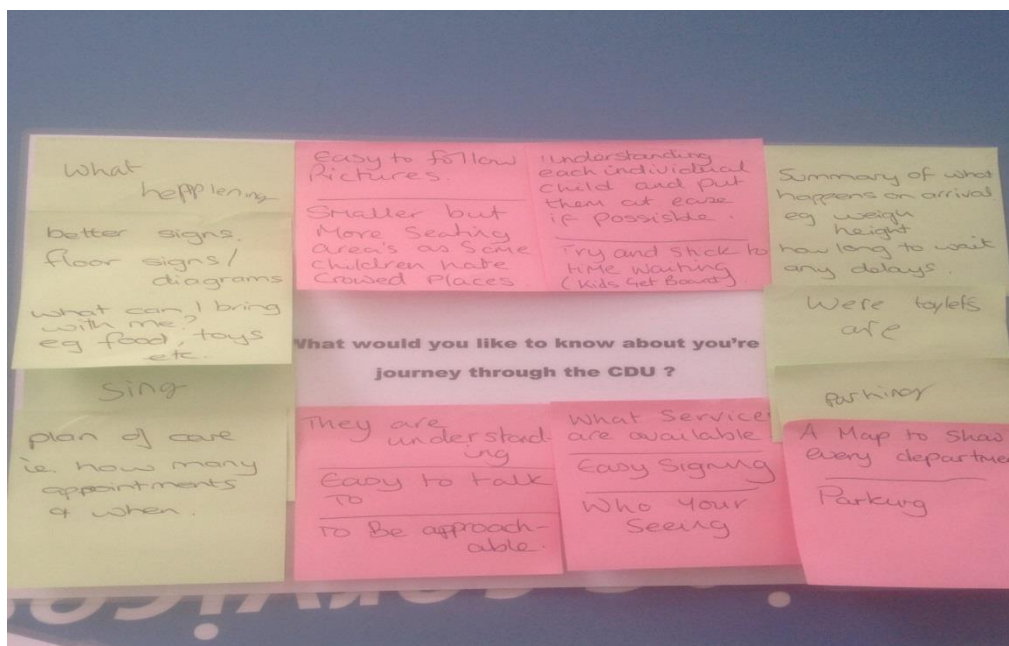 What
hepplening
better signs.
floor signs/
diagrams
what can I bring
with me?
eg food, toys
etc.
Sing
plan of care
i.e. how many
appointments
& when.
Easy to follow
Pictures.
Smaller but
More Seating
area's as Some
children hate
Crowed Places
understanding
each individual
child and put
them at ease
if Possible.
Try and stick to
time waiting
(Kids Get Bored).
Summary of what
happens on arrival
eg weigh
height
how long to wait
any delays.
Were toylets
are
parking
What would you like to know about you're
journey through the CDU ?
They are
understand-
ing
Easy to talk
To
To Be approach-
able.
What Service
are available
Easy Signing
Who Your
Seeing
A Map to Show
every departme
Parking
services